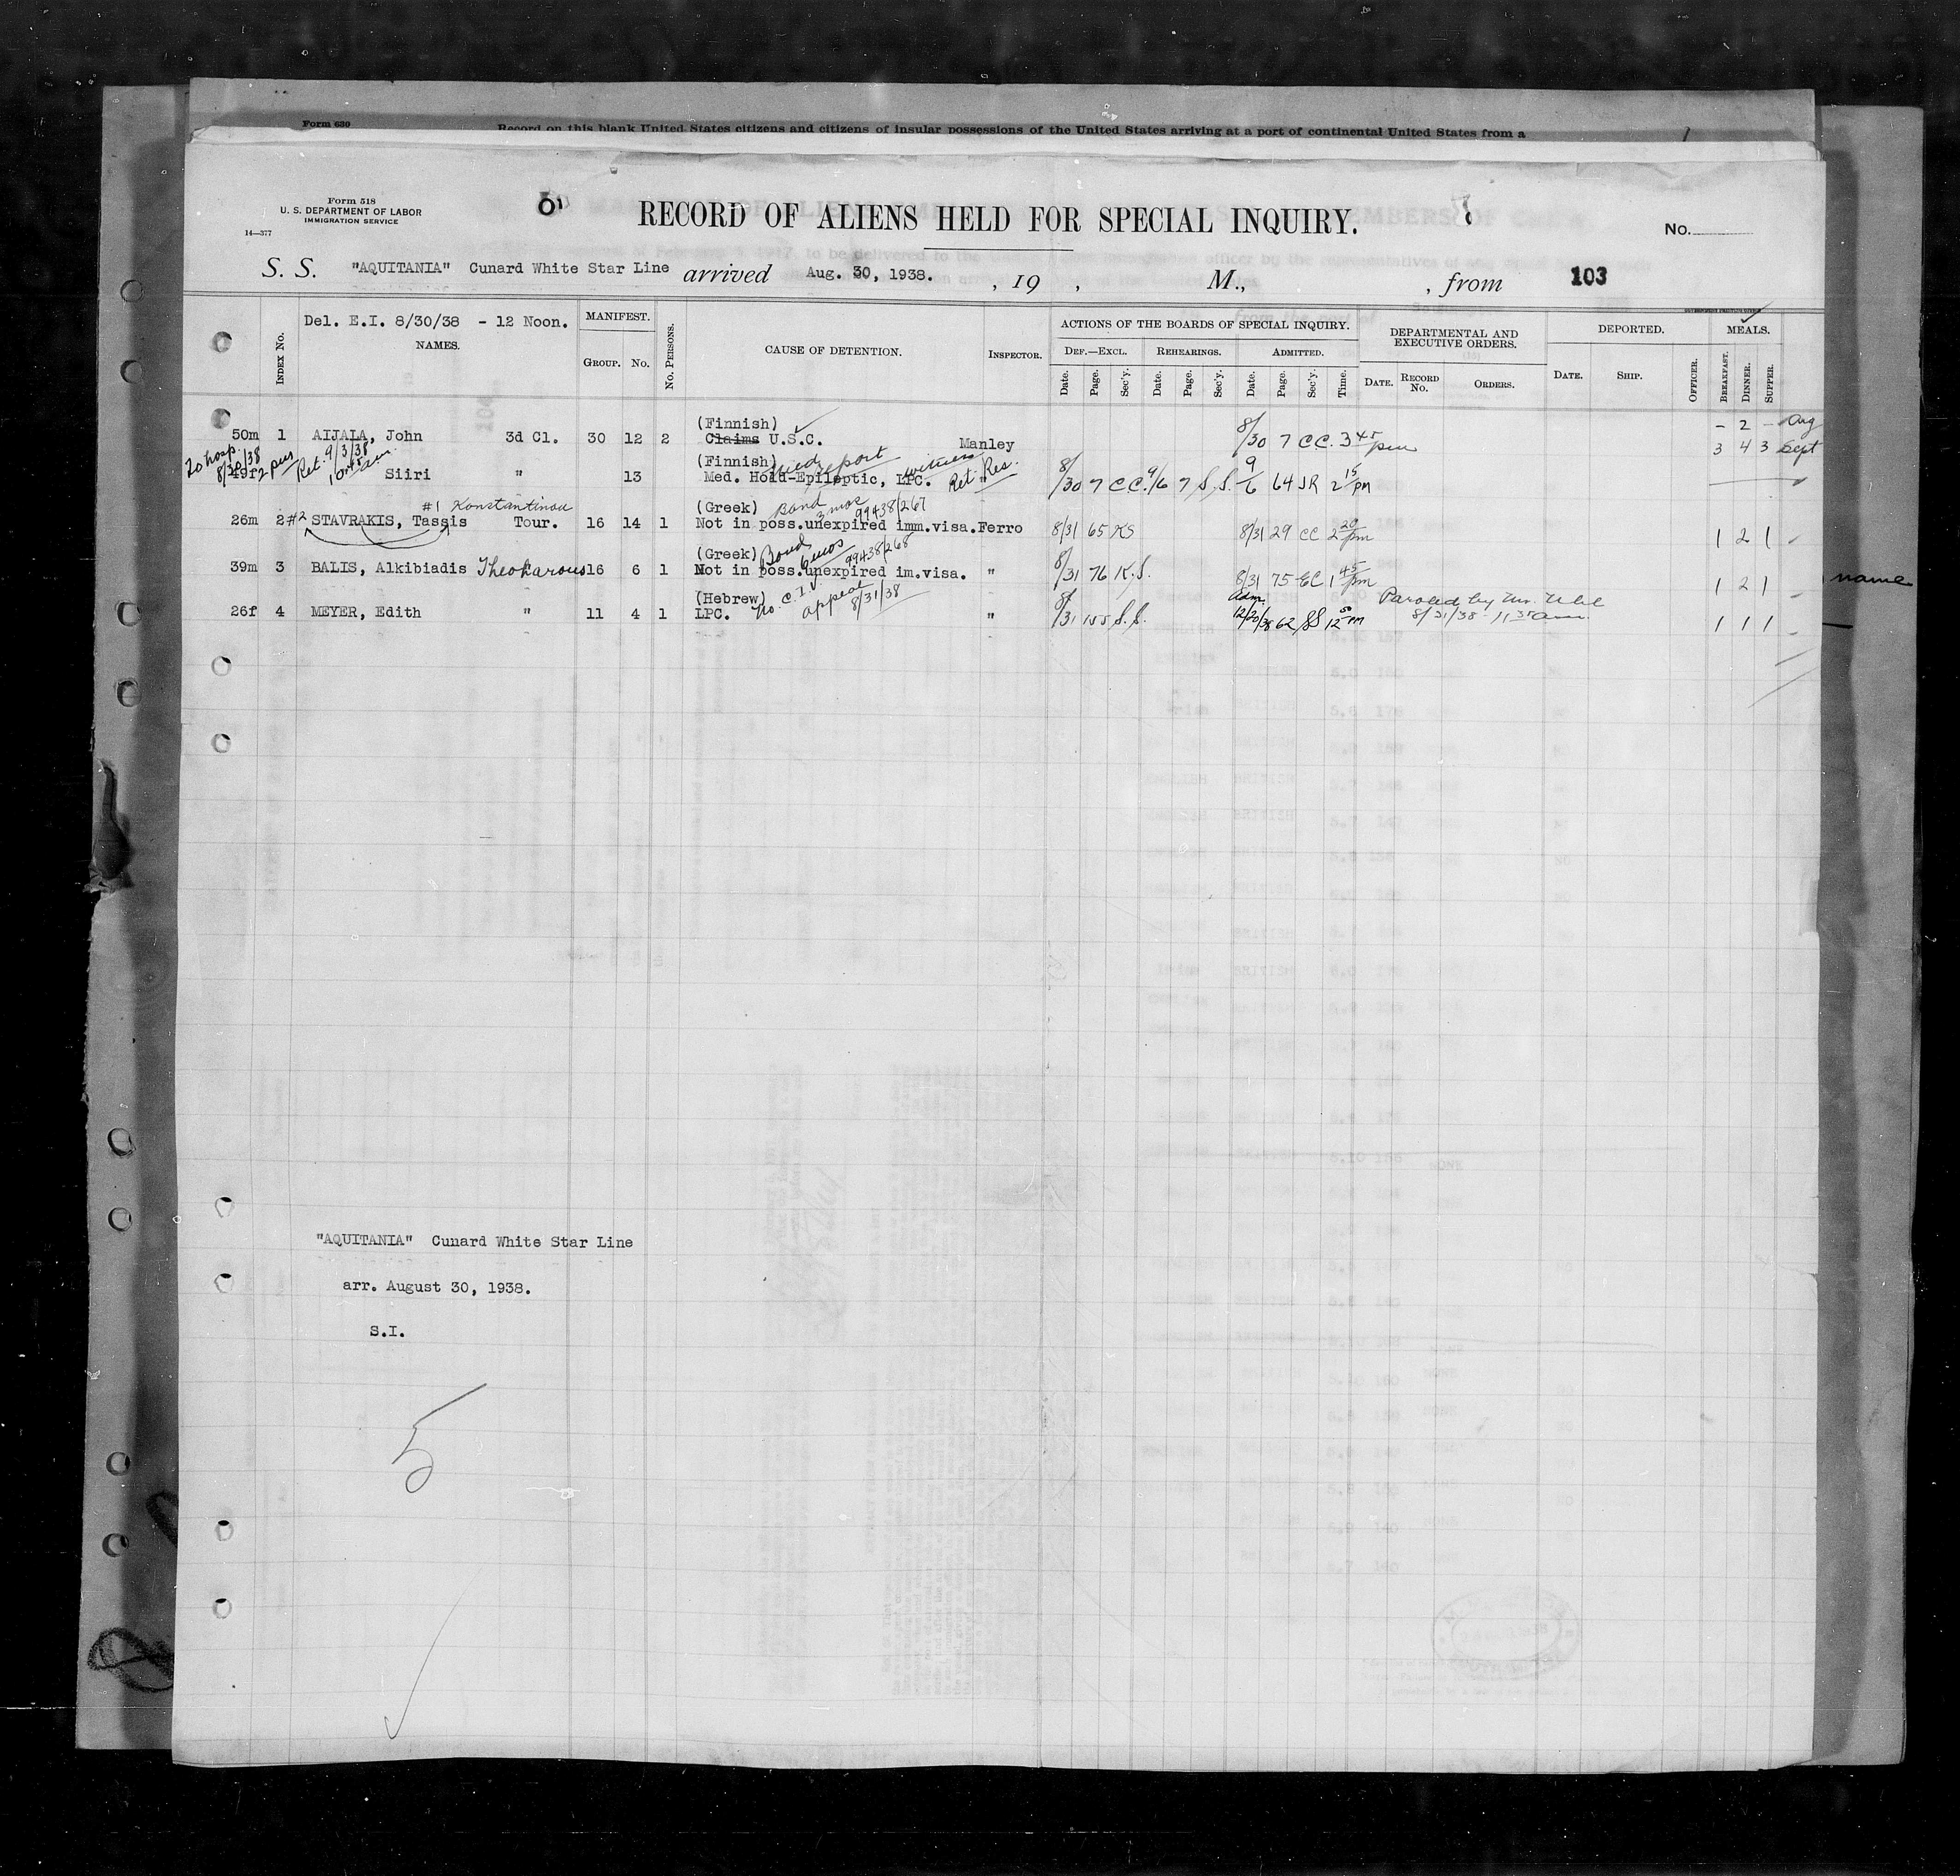 Form 630
Record on this blank United States citizens and citizens of insular possessions of the United States arriving at a port of continental United States from a
Form 518
U. S. DEPARTMENT OF LABOR
IMMIGRATION SERVICE
14—377
RECORD OF ALIENS HELD FOR SPECIAL INQUIRY.
No.
S. S. "AQUITANIA" Cunard White Star Line arrived Aug. 30, 1938. , 19 , M., , from 103
Del. E.I. 8/30/38 - 12 Noon.
INDEX No. NAMES. MANIFEST. GROUP. No. No. PERSONS. CAUSE OF DETENTION. INSPECTOR.
ACTIONS OF THE BOARDS OF SPECIAL INQUIRY.
DEF.—EXCL. REHEARINGS. ADMITTED.
Date. Page. Sec'y. Date. Page. Sec'y. Date. Page. Sec'y. Time.
DEPARTMENTAL AND EXECUTIVE ORDERS.
DATE. RECORD No. ORDERS.
DEPORTED.
DATE. SHIP. OFFICER.
MEALS.
BREAKFAST. DINNER. SUPPER.
(Finnish)
50m 1 AIJALA, John 3d Cl. 30 12 2 Claims U.S.C. Manley 8/30 7 CC. 3 45 pm - 2 - Aug
3 4 3 Sept
To hosp. 8/30/38 2 pm Ret. 9/3/38 10 45 am.
(Finnish) Med report witness
49f Siiri " 13 Med. Hold-Epileptic, LPC. Ret. Res. " 8/30 7 CC. 9/6 7 S.S. 9/6 64 JR 2 15 pm
#1 Konstantinou
(Greek) Bond 3 mos 99438/267
26m 2 #2 STAVRAKIS, Tassis Tour. 16 14 1 Not in poss.unexpired imm.visa. Ferro 8/31 65 KS 8/31 29 CC 2 20 pm 1 2 1
(Greek) Bond 6 mos 99438/268
39m 3 BALIS, Alkibiadis Theokarous 16 6 1 Not in poss.unexpired im.visa. " 8/31 76 K.S. 8/31 75 EC 1 45 pm 1 2 1 name
(Hebrew) No. C.I.V. appeal 8/31/38
26f 4 MEYER, Edith " 11 4 1 LPC. " 8/31 155 S.S. Adm. 12/20/38 62 SS 12 50 PM Paroled by Mr. Uhl 8/31/38 - 11 35 am. 1 1 1
"AQUITANIA" Cunard White Star Line
arr. August 30, 1938.
S.I.
5